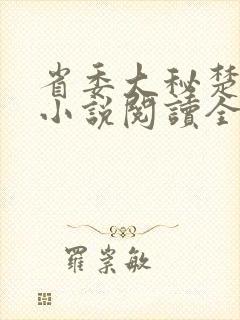 省委大秘楚
小說閱讀全
羅崇敏